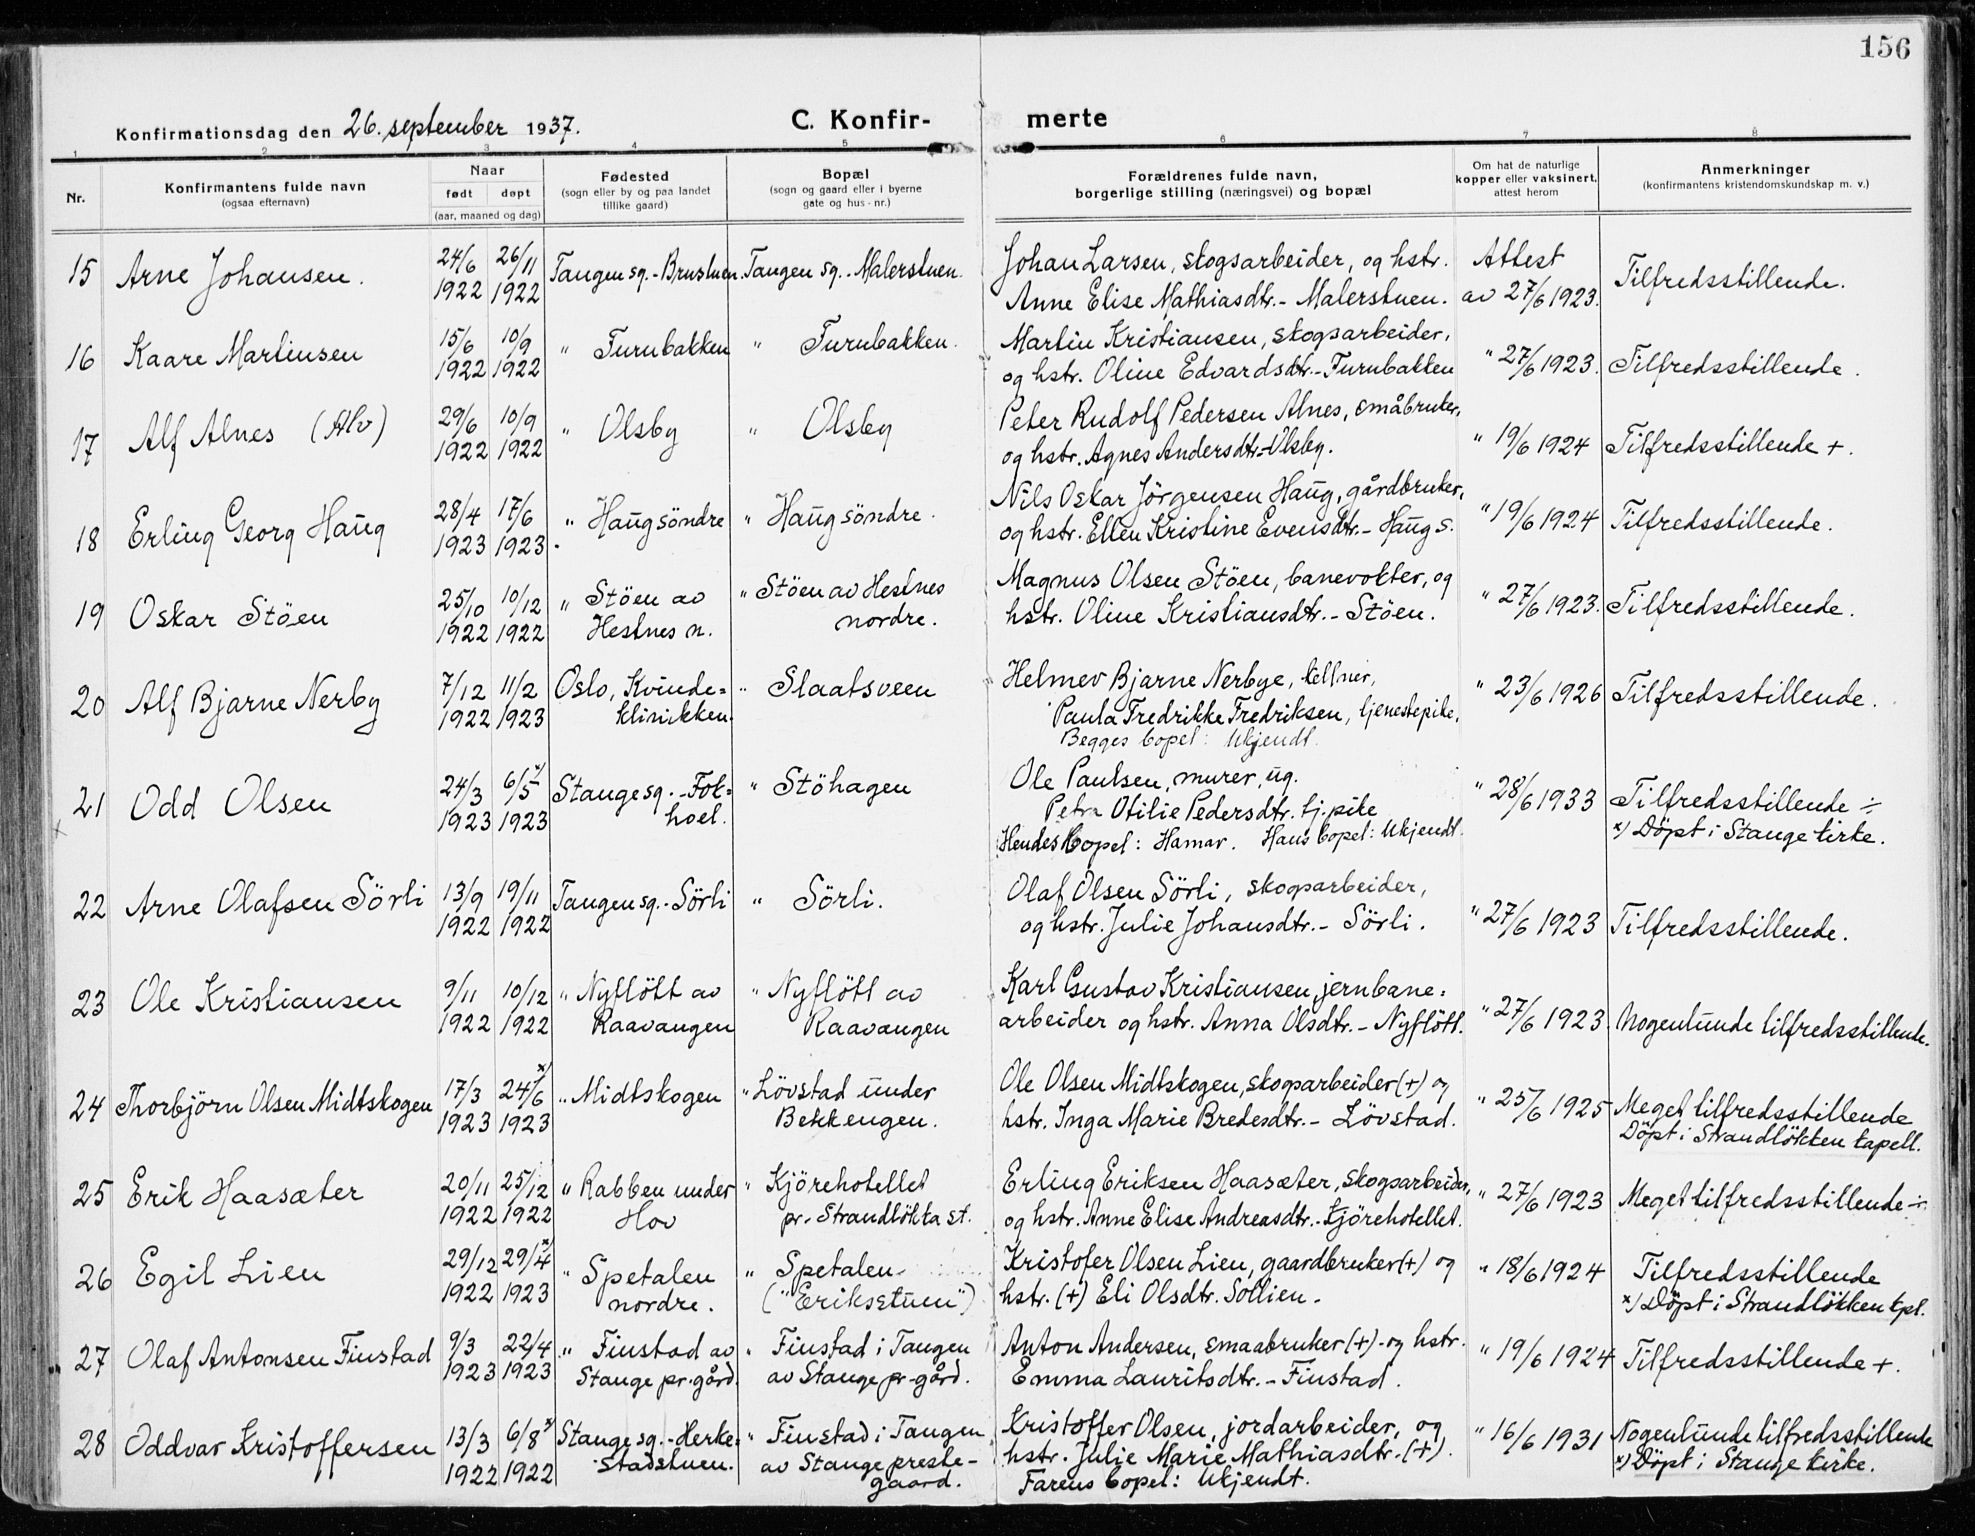 156
Konfirmationsdag den 26. september 1937.
C. Konfirmerte
1 2 3 4 5 6 7 8
Nr.
Konfirmantens fulde navn
(ogsaa efternavn)
Naar
født døpt
(aar, maaned og dag)
Fødested
(sogn eller by og paa landet
tillike gaard)
Bopæl
(sogn og gaard eller i byerne
gate og hus-nr.)
Forældrenes fulde navn,
borgerlige stilling (næringsvei) og bopæl
Om hat de naturlige
kopper eller vaksinert,
attest herom
Anmerkninger
(konfirmantens kristendomskundskap m. v.)
15 Arne Johansen. 24/6 1922 26/11 1922 Tangen sg. - Brustuen. Tangen sg. - Malerstuen.
Johan Larsen, skogsarbeider, og hstr.
Anne Elise Mathiasdtr. - Malerstuen.
Attest
av 27/6 1923. Tilfredsstillende.
16 Kaare Martinsen 15/6 1922 10/9 1922 " Furubakken " Furubakken.
Martin Kristiansen, skogsarbeider,
og hstr. Oline Edvardsdtr. - Furubakken
" 27/6 1923. Tilfredsstillende.
17 Alf Alnes (Alv) 29/6 1922 10/9 1922 " Olsby " Olsby
Peter Rudolf Pedersen Alnes, småbruker,
og hstr. Agnes Andersdtr. - Olsby.
" 19/6 1924 Tilfredsstillende +.
18 Erling Georg Haug 28/4 1923 17/6 1923. " Haug söndre " Haug söndre.
Nils Oskar Jörgensen Haug, gårdbruker,
og hstr. Ellen Kristine Evensdtr. - Haug s.
" 19/6 1924 Tilfredsstillende.
19 Oskar Stöen 25/10 1922 10/12 1922 " Stöen av
Hestnes n.
" Stöen av Hestnes
nordre.
Magnus Olsen Stöen, banevokter, og
hstr. Oline Kristiansdtr. - Stöen.
" 27/6 1923. Tilfredsstillende.
20 Alf Bjarne Nerby 7/12 1922 11/2 1923 Oslo, Kvinde=
klinikken.
" Slaatsveen
Helmer Bjarne Nerbye, kellner,
Paula Fredrikke Fredriksen, tjenestepike.
Begges bopel: Ukjendt.
" 23/6 1926 Tilfredsstillende.
21 Odd Olsen 24/3 1923 6/5 x) 1923 Stange sg. - Fok=
hoel.
" Stöhagen
Ole Paulsen, murer, ug.
Petra Otilie Pedersdtr. tj.pike
Hendes bopel: Hamar. Hans bopel: Ukjendt.
" 28/6 1933 Tilfredsstillende ÷
x) Döpt i Stange kirke.
22 Arne Olafsen Sörli 13/9 1922 19/11 1922 Tangen sg. - Sörli " Sörli.
Olaf Olsen Sörli, skogsarbeider,
og hstr. Julie Johansdtr. - Sörli.
" 27/6 1923 Tilfredsstillende.
23 Ole Kristiansen 9/11 1922 10/12 1922 " Nyflött av
Raavangen
" Nyflött av
Raavangen
Karl Gustav Kristiansen, jernbane=
arbeider og hstr. Anna Olsdtr. - Nyflött.
" 27/6 1923. Nogenlunde tilfredsstillende.
24 Thorbjörn Olsen Midtskogen 17/3 1923 24/6 x) 1923 " Midtskogen " Lövstad under
Bekkengen.
Ole Olsen Midtskogen, skogsarbeider (+) og
hstr. Inga Marie Bredesdtr. - Lövstad.
" 25/6 1925 Meget tilfredsstillende
Döpt i Strandlökken kapell.
25 Erik Haasæter 20/11 1922 25/12 1922 " Rabben under
Hov
" Kjörehotellet
pr. Strandlökka st.
Erling Eriksen Haasæter, skogsarbeider,
og hstr. Anne Elise Andreasdtr. - Kjörehotellet.
" 27/6 1923 Meget tilfredsstillende ÷.
26 Egil Lien 29/12 1922 29/4 x) 1923 " Spetalen
nordre.
" Spetalen
("Eriksstuen")
Kristofer Olsen Lien, gaardbruker (+) og
hstr. (+) Eli Olsdtr. Sollien.
" 18/6 1924 Tilfredsstillende
x) Döpt i Strandlökken kpl.
27 Olaf Antonsen Finstad 9/3 1923 22/4 1923 " Finstad av
Stange pr.gård.
" Finstad i Tangen
av Stange pr-gård.
Anton Andersen, smaabruker (+) - og hstr.
Emma Lauritsdtr. - Finstad.
" 19/6 1924 Tilfredsstillende +.
28 Oddvar Kristoffersen 13/3 1922 6/8 x) 1922 Stange sg. - Herke=
stadstuen.
" Finstad i Tangen
av Stange preste-
gaard.
Kristoffer Olsen, jordarbeider, og
hstr. Julie Marie Mathiasdtr. (+).
Farens bopel: Ukjendt.
" 16/6 1931 Nogenlunde tilfredsstillende
x) Döpt i Stange kirke.